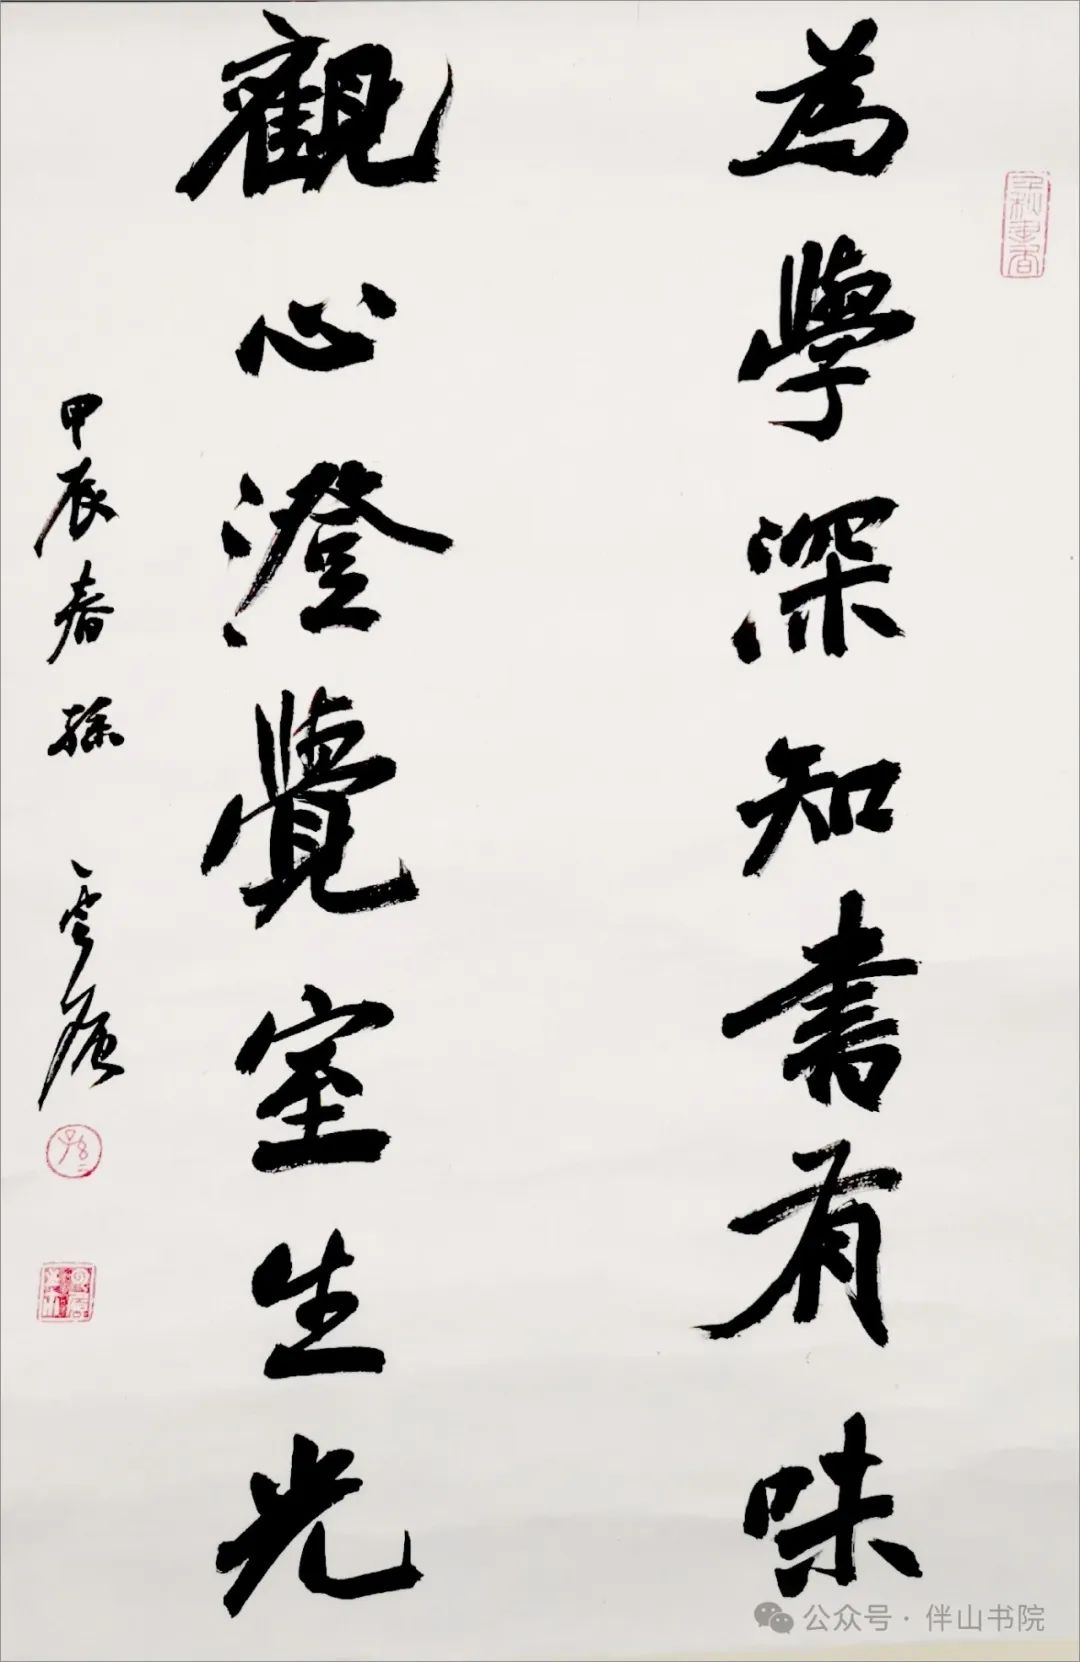 為學深知書有味
觀心澄覺室生光
甲辰春 孫
公众号·伴山书院